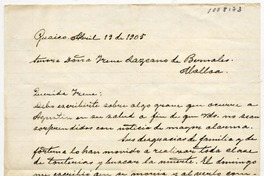 1008133
Quaico, Abril 19 de 1905
Señora Doña Irene Lazcano de Bernales.
Malloa.
Querida Irene:
Debo escribirte sobre algo grave que ocurre a
Agustin en su salud a fin de que Uds. no sean
sorprendidas con noticia de mayor alarma.
Sus desgracias de familia y de
fortuna lo han movido a realizar toda clase
de tonterias y buscar la muerte. El domingo
me escribió que se moria y al verlo com-